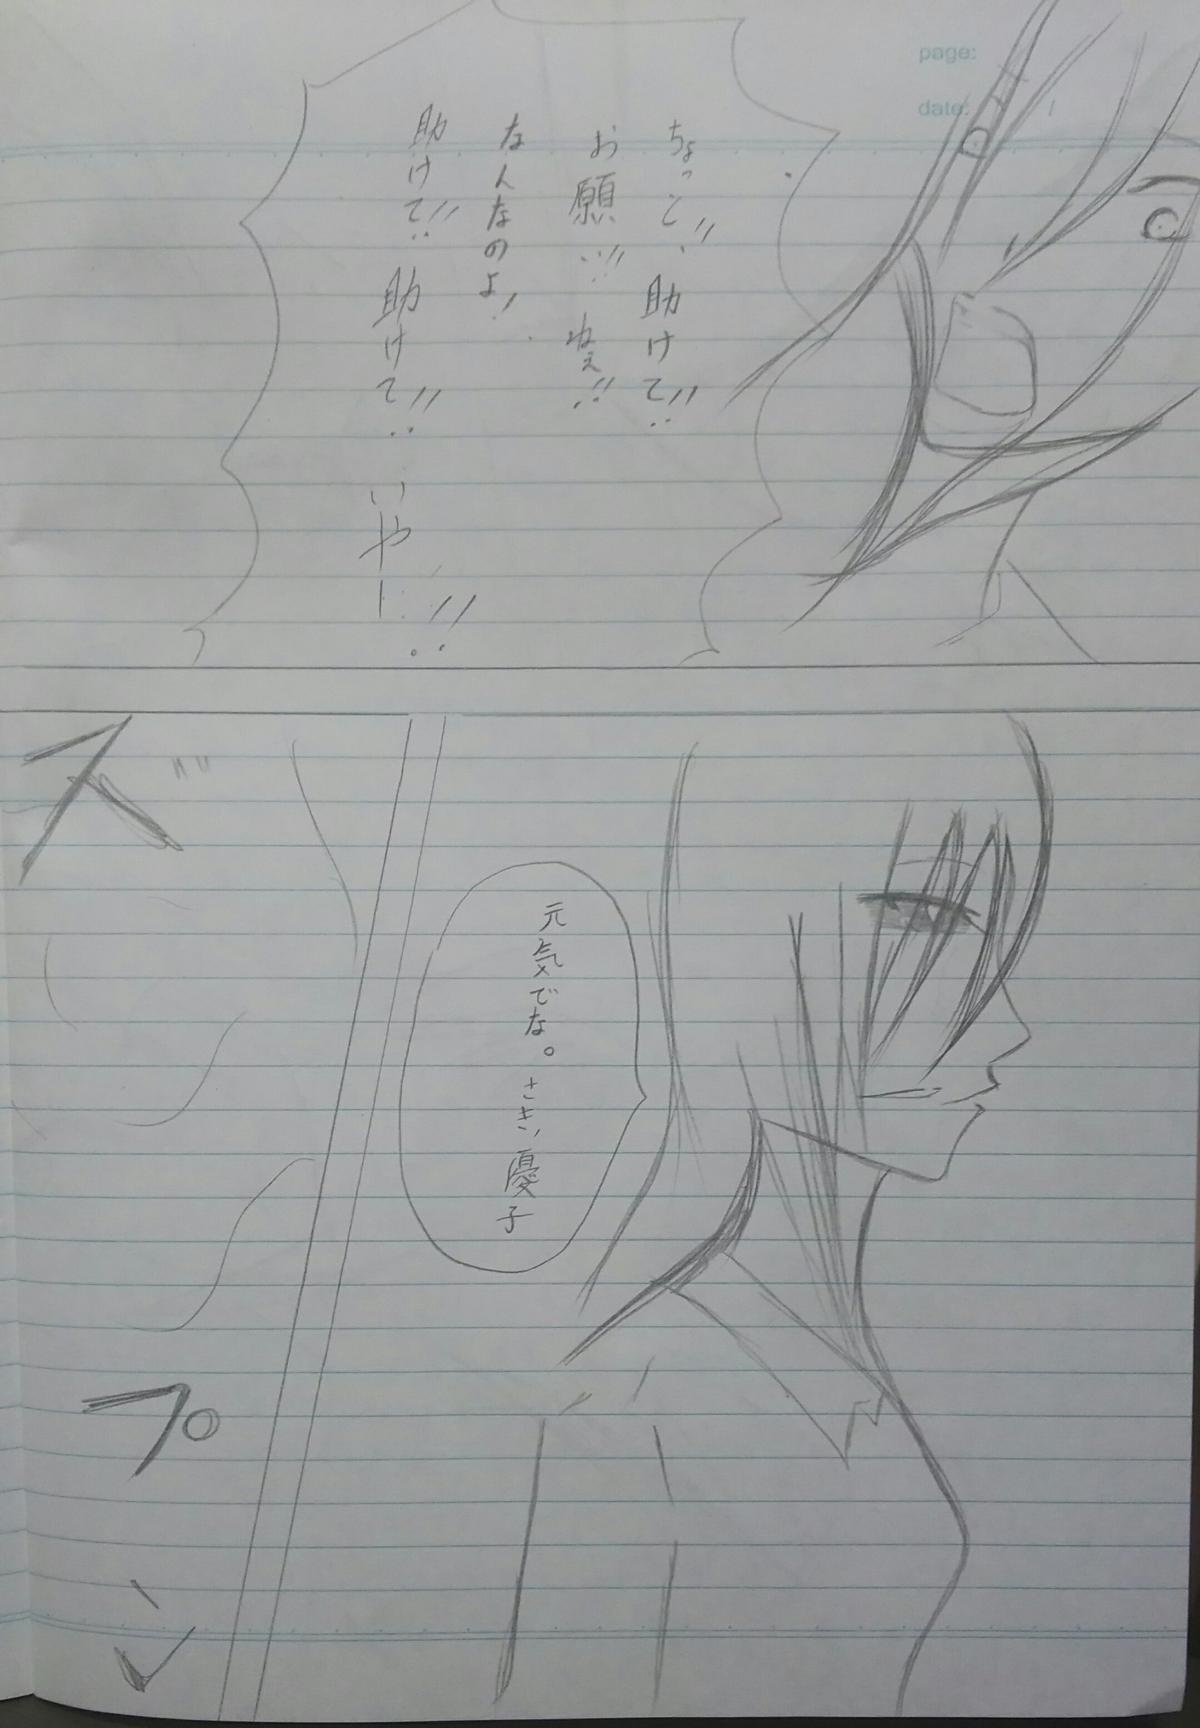 page:
date: /
ちょっと!! 助けて!!
お願い!! ねぇ!!
なんなのよ!
助けて!! 助けて!! いやー!!
元気でな。さき、優子
ズプン